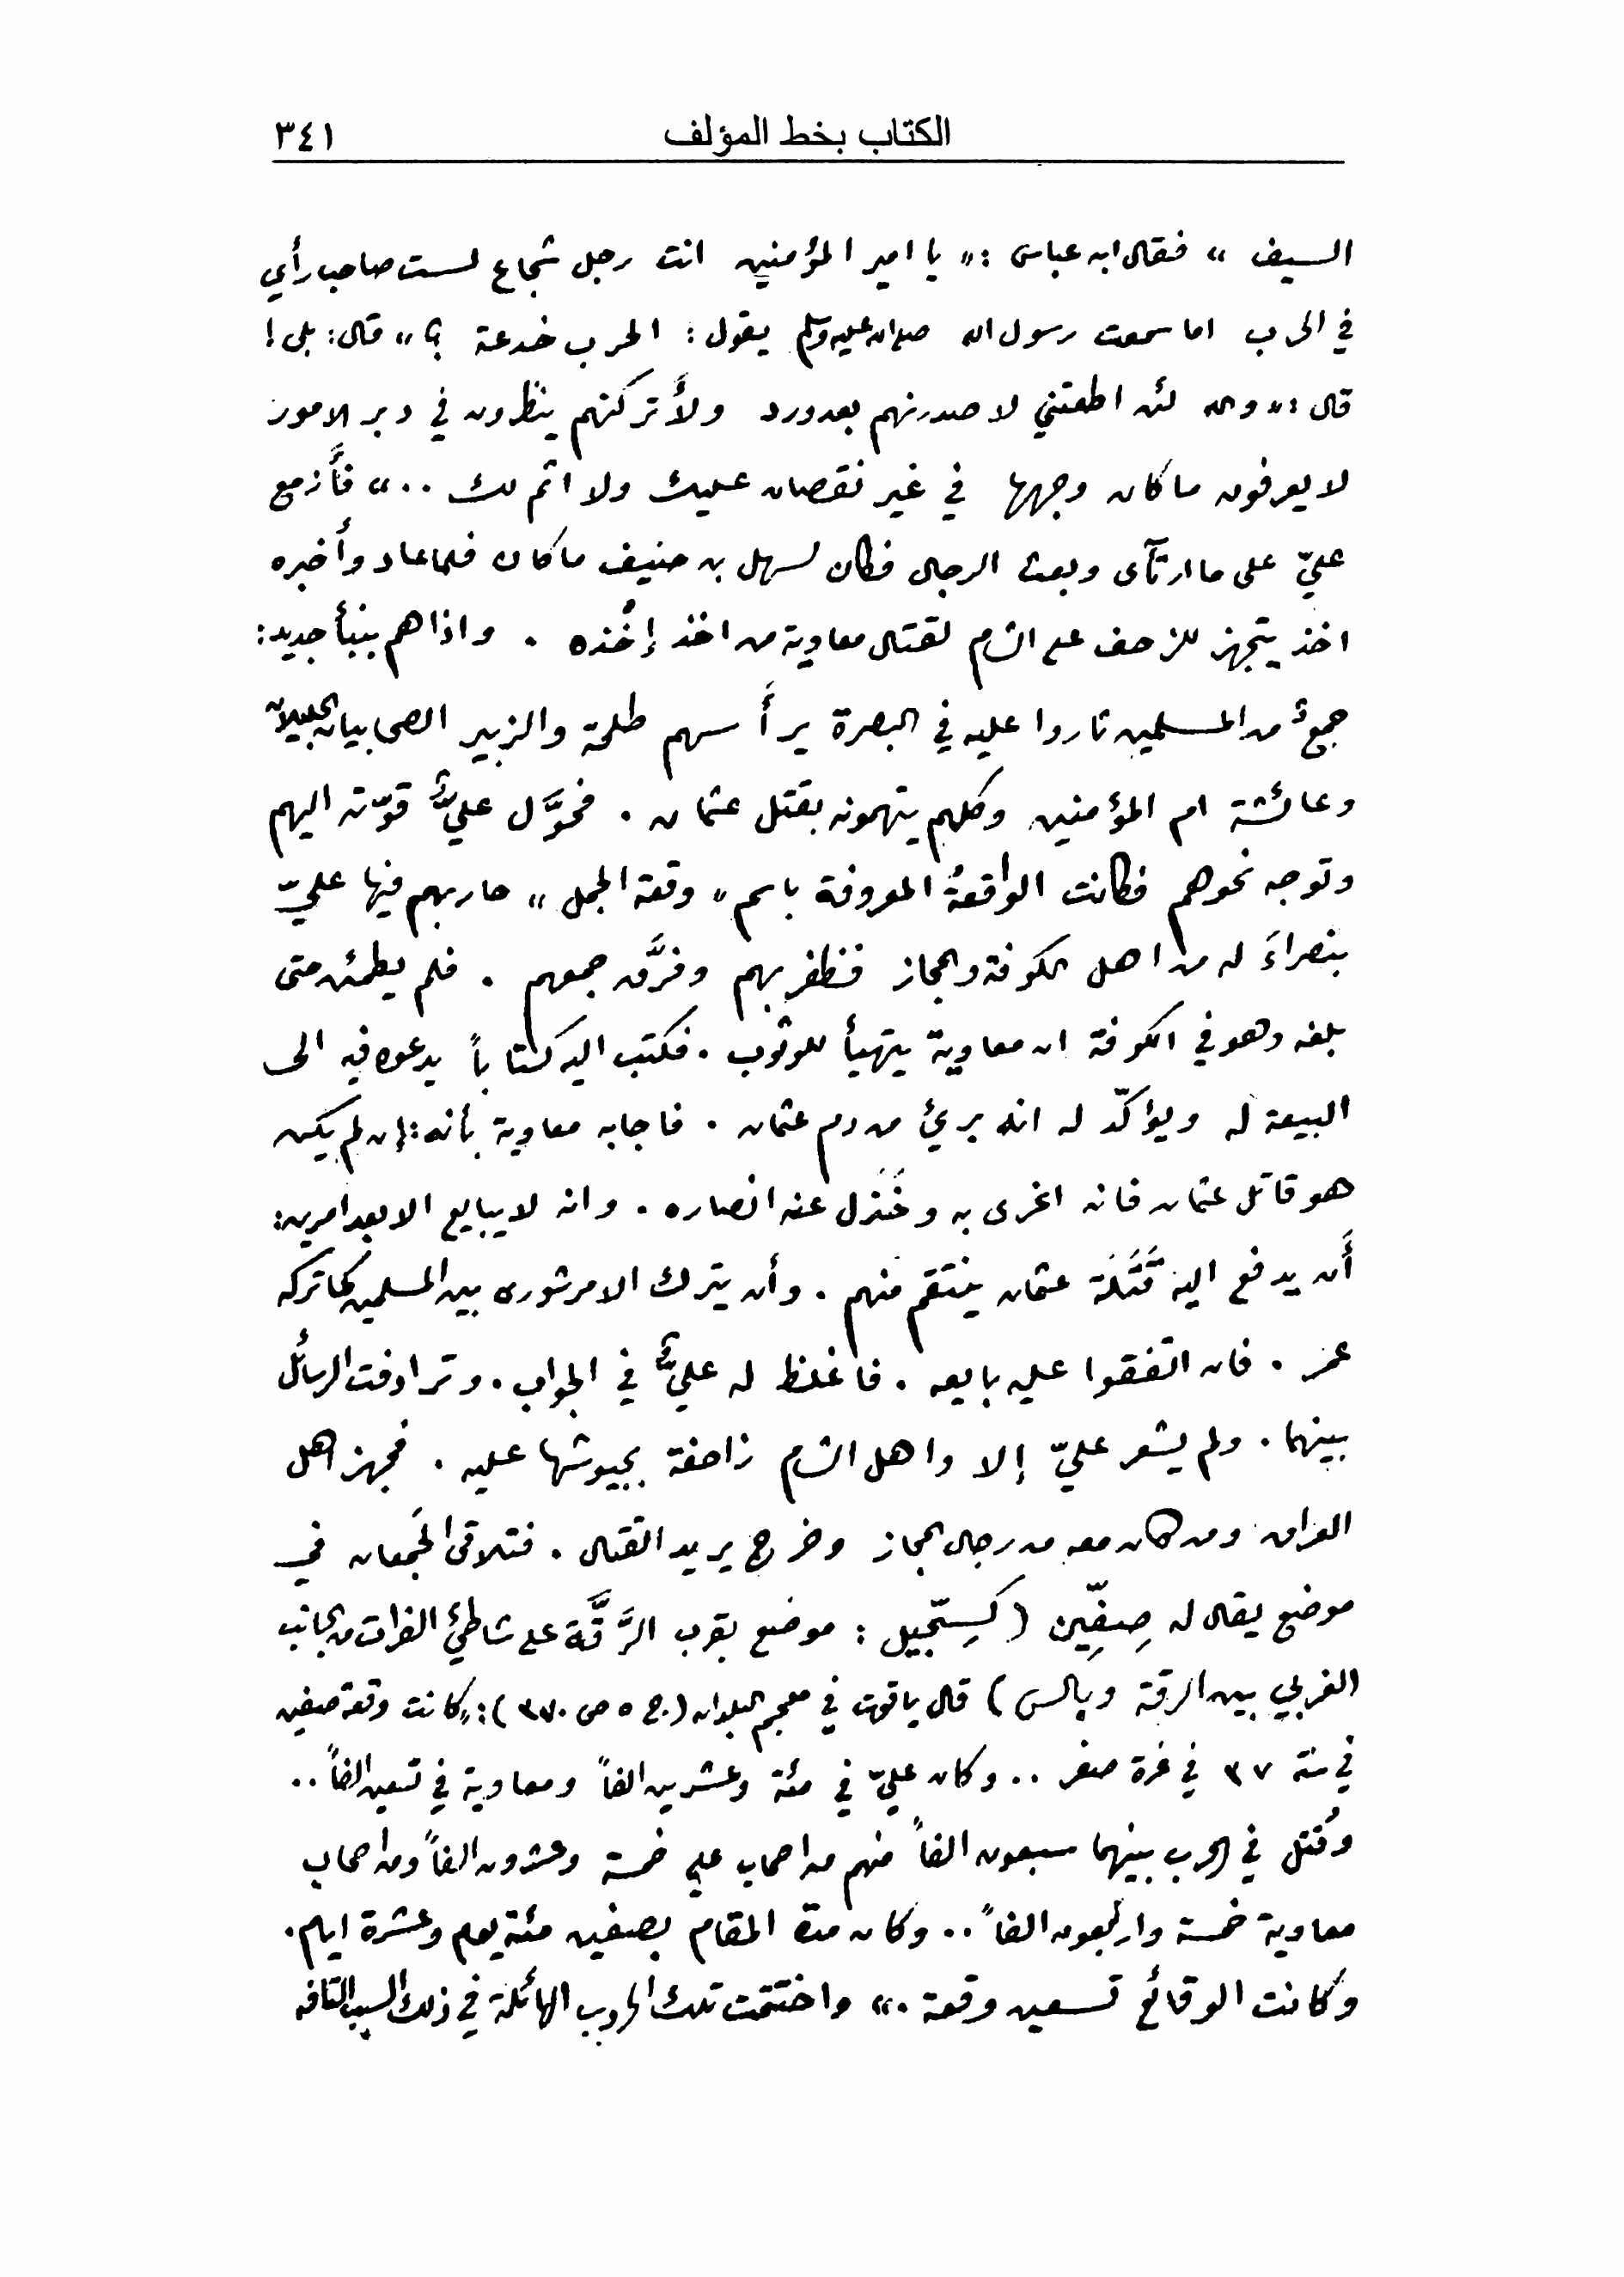 الكتاب بخط المؤلف ٣٤١
السيف » فقال ابن عباس : « يا امير المؤمنين انت رجل شجاع لست صاحب رأي
في الحرب اما سمعت رسول الله صلى الله عليه وسلم يقول : الحرب خدعة ؟ » قال : بلى !
قال : « والله لئن اطعتني لاصدرنهم بعد ورد ولأتركنهم ينظرون في دبر الامور
لا يعرفون ما كان وجهها في غير نقصان عليك ولا اثم لك .. » فأزمع
عليّ على ما ارتآى وبعث الرجال فكان لسهل بن حنيف ما كان فلما عاد وأخبره
اخذ يتجهز للزحف على الشام لقتال معاوية ومن اخذ إخْذه . واذا هم بنبأ جديد :
جمعٌ من المسلمين ثاروا عليه في البصرة يرأَسهم طلحة والزبير الصحابيان الجليلان
وعائشة ام المؤمنين وكلهم يتهمونه بقتل عثمان . فحوَّل عليٌّ قوّته اليهم
وتوجه نحوهم فكانت الواقعةُ المعروفة باسم « وقعة الجمل » حاربهم فيها عليّ
بنصراءَ له من اهل الكوفة والحجاز فظفر بهم وفرَّق جمعهم . فلم يطمئن حتى
بلغه وهو في الكوفة ان معاوية يتهيأ للوثوب . فكتب اليه كتاباً يدعوه فيه الى
البيعة له ويؤكّد له انه بريئ من دم عثمان . فاجابه معاوية بأنه : إن لم يكن
هو قاتل عثمان فانه اغرى به وخَذَل عنه انصاره . وانه لا يبايع الا بعد امرين :
أَن يدفع اليه قَتَلَة عثمان ينتقم منهم . وأن يترك الامر شورى بين المسلمين كما تركه
عمر . فان اتفقوا عليه بايعه . فاغلظ له عليٌّ في الجواب . وترادفت الرسائل
بينهما . ولم يشعر عليّ إلا واهل الشام زاحفة بجيوشها عليه . فجهز اهل
العراق ومن كان معه من رجال الحجاز وخرج يريد القتال . فتلاقى الجَمعان في
موضع يقال له صِفِّين ( كسِجّيل : موضع بقرب الرَّقَّة على شاطئ الفرات من الجانب
الغربي بين الرقة وبالس ) قال ياقوت في معجم البلدان ( ج ٥ ص ٣٧٠ ) : « كانت وقعة صفين
في سنة ٣٧ في غرة صفر .. وكان عليّ في مئة وعشرين الفاً ومعاوية في تسعين الفاً ..
وقُتل في الحرب بينهما سبعون الفاً منهم من اصحاب علي خمسة وعشرون الفاً ومن اصحاب
معاوية خمسة واربعون الفاً .. وكان مدة المقام بصفين مئة يوم وعشرة ايام .
وكانت الوقائع تسعين وقعة . » واختتمت تلك الحروب الهائلة في ذلك السبب التافه